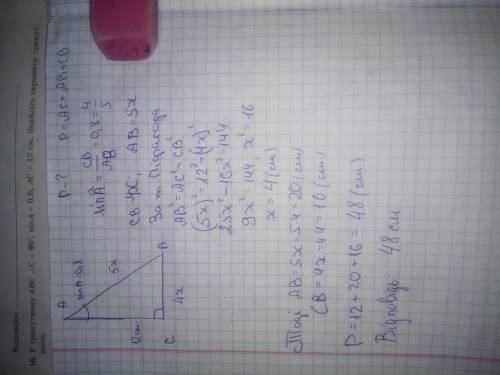 Відповідь:
16. У трикутнику ABC ∠C = 90°, sinA = 0,8, AC = 12 см. Знайдіть периметр трикут-
ника.
A
sinA=0,8
5x
12см
B
C
4x
P-? P=AC+AB+CB
sin A = CB/AB = 0,8 = 4/5
CB-4x; AB=5x
За т. Піфагора
AB²=AC²+CB²
(5x)²=12²+(4x)²
25x²-16x²=144
9x²=144, x²=16
x=4(см)
Тоді AB=5x=5·4=20(см)
CB=4x=4·4=16(см)
P=12+20+16=48(см)
Відповідь 48 см